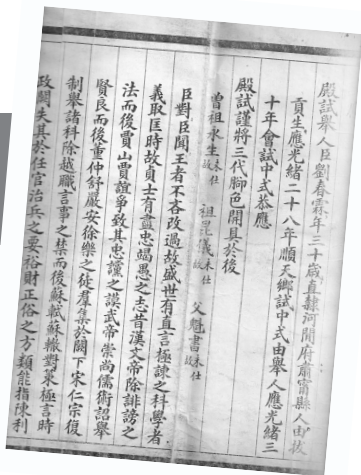 殿試舉人臣劉春霖年三十歲直隸河間府肅寧縣人由拔
貢生應光緒二十八年順天鄉試中式由舉人應光緒三
十年會試中式恭應
殿試謹將三代腳色開具於後
曾祖永生未仕故 祖 儀未仕故 父魁書未仕故
臣對臣聞王者不吝改過故盛世有直言極諫之科學者
義取匡時故貞士有盡忠竭愚之志昔漢文帝除誹謗之
法而後賈山賈誼爭致其忠讜之謨武帝崇尚儒術詔舉
賢良而後董仲舒嚴安徐樂之徒群集於闕下宋仁宗復
制舉諸科除越職言事之禁而後蘇軾蘇轍對策極言時
政闕失其於任官治兵之要裕財正俗之方類能指陳利